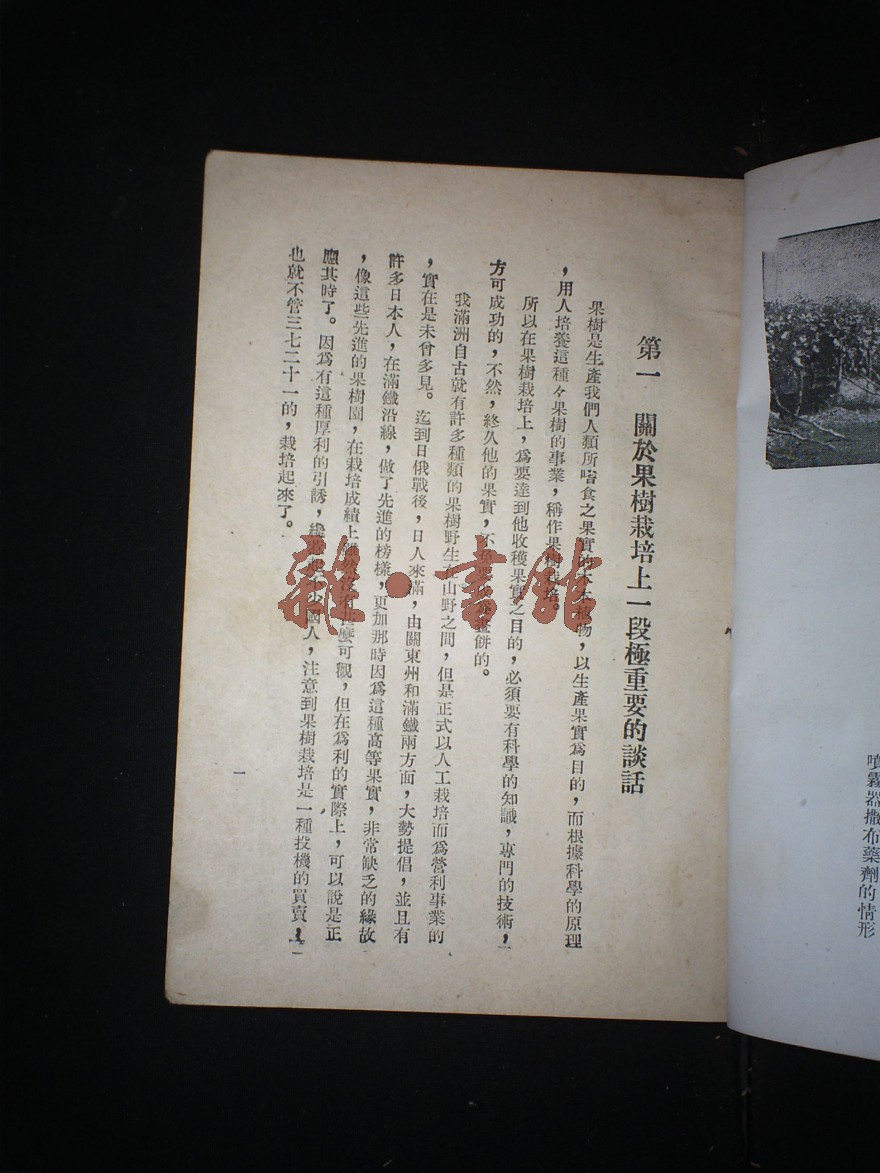 噴霧器撒布藥劑的情形
第一　關於果樹栽培上一段極重要的談話
果樹是生產我們人類所嗜食之果實的木本植物，以生產果實爲目的，而根據科學的原理
，用人培養這種々果樹的事業，稱作果樹栽培。
所以在果樹栽培上，爲要達到他收穫果實之目的，必須要有科學的知識，專門的技術，
方可成功的，不然，終久他的果實，不免要成爲畫餅的。
我滿洲自古就有許多種類的果樹野生在山野之間，但是正式以人工栽培而爲營利事業的
，實在是未曾多見。迄到日俄戰後，日人來滿，由關東州和滿鐵兩方面，大勢提倡，並且有
許多日本人，在滿鐵沿線，做了先進的榜樣，更加那時因爲這種高等果實，非常缺乏的緣故
，像這些先進的果樹園，在栽培成績上雖然沒有甚麼可觀，但在爲利的實際上，可以說是正
應其時了。因爲有這種厚利的引誘，纔惹起不少國人，注意到果樹栽培是一種投機的買賣，
也就不管三七二十一的，栽培起來了。
一
雜·書館